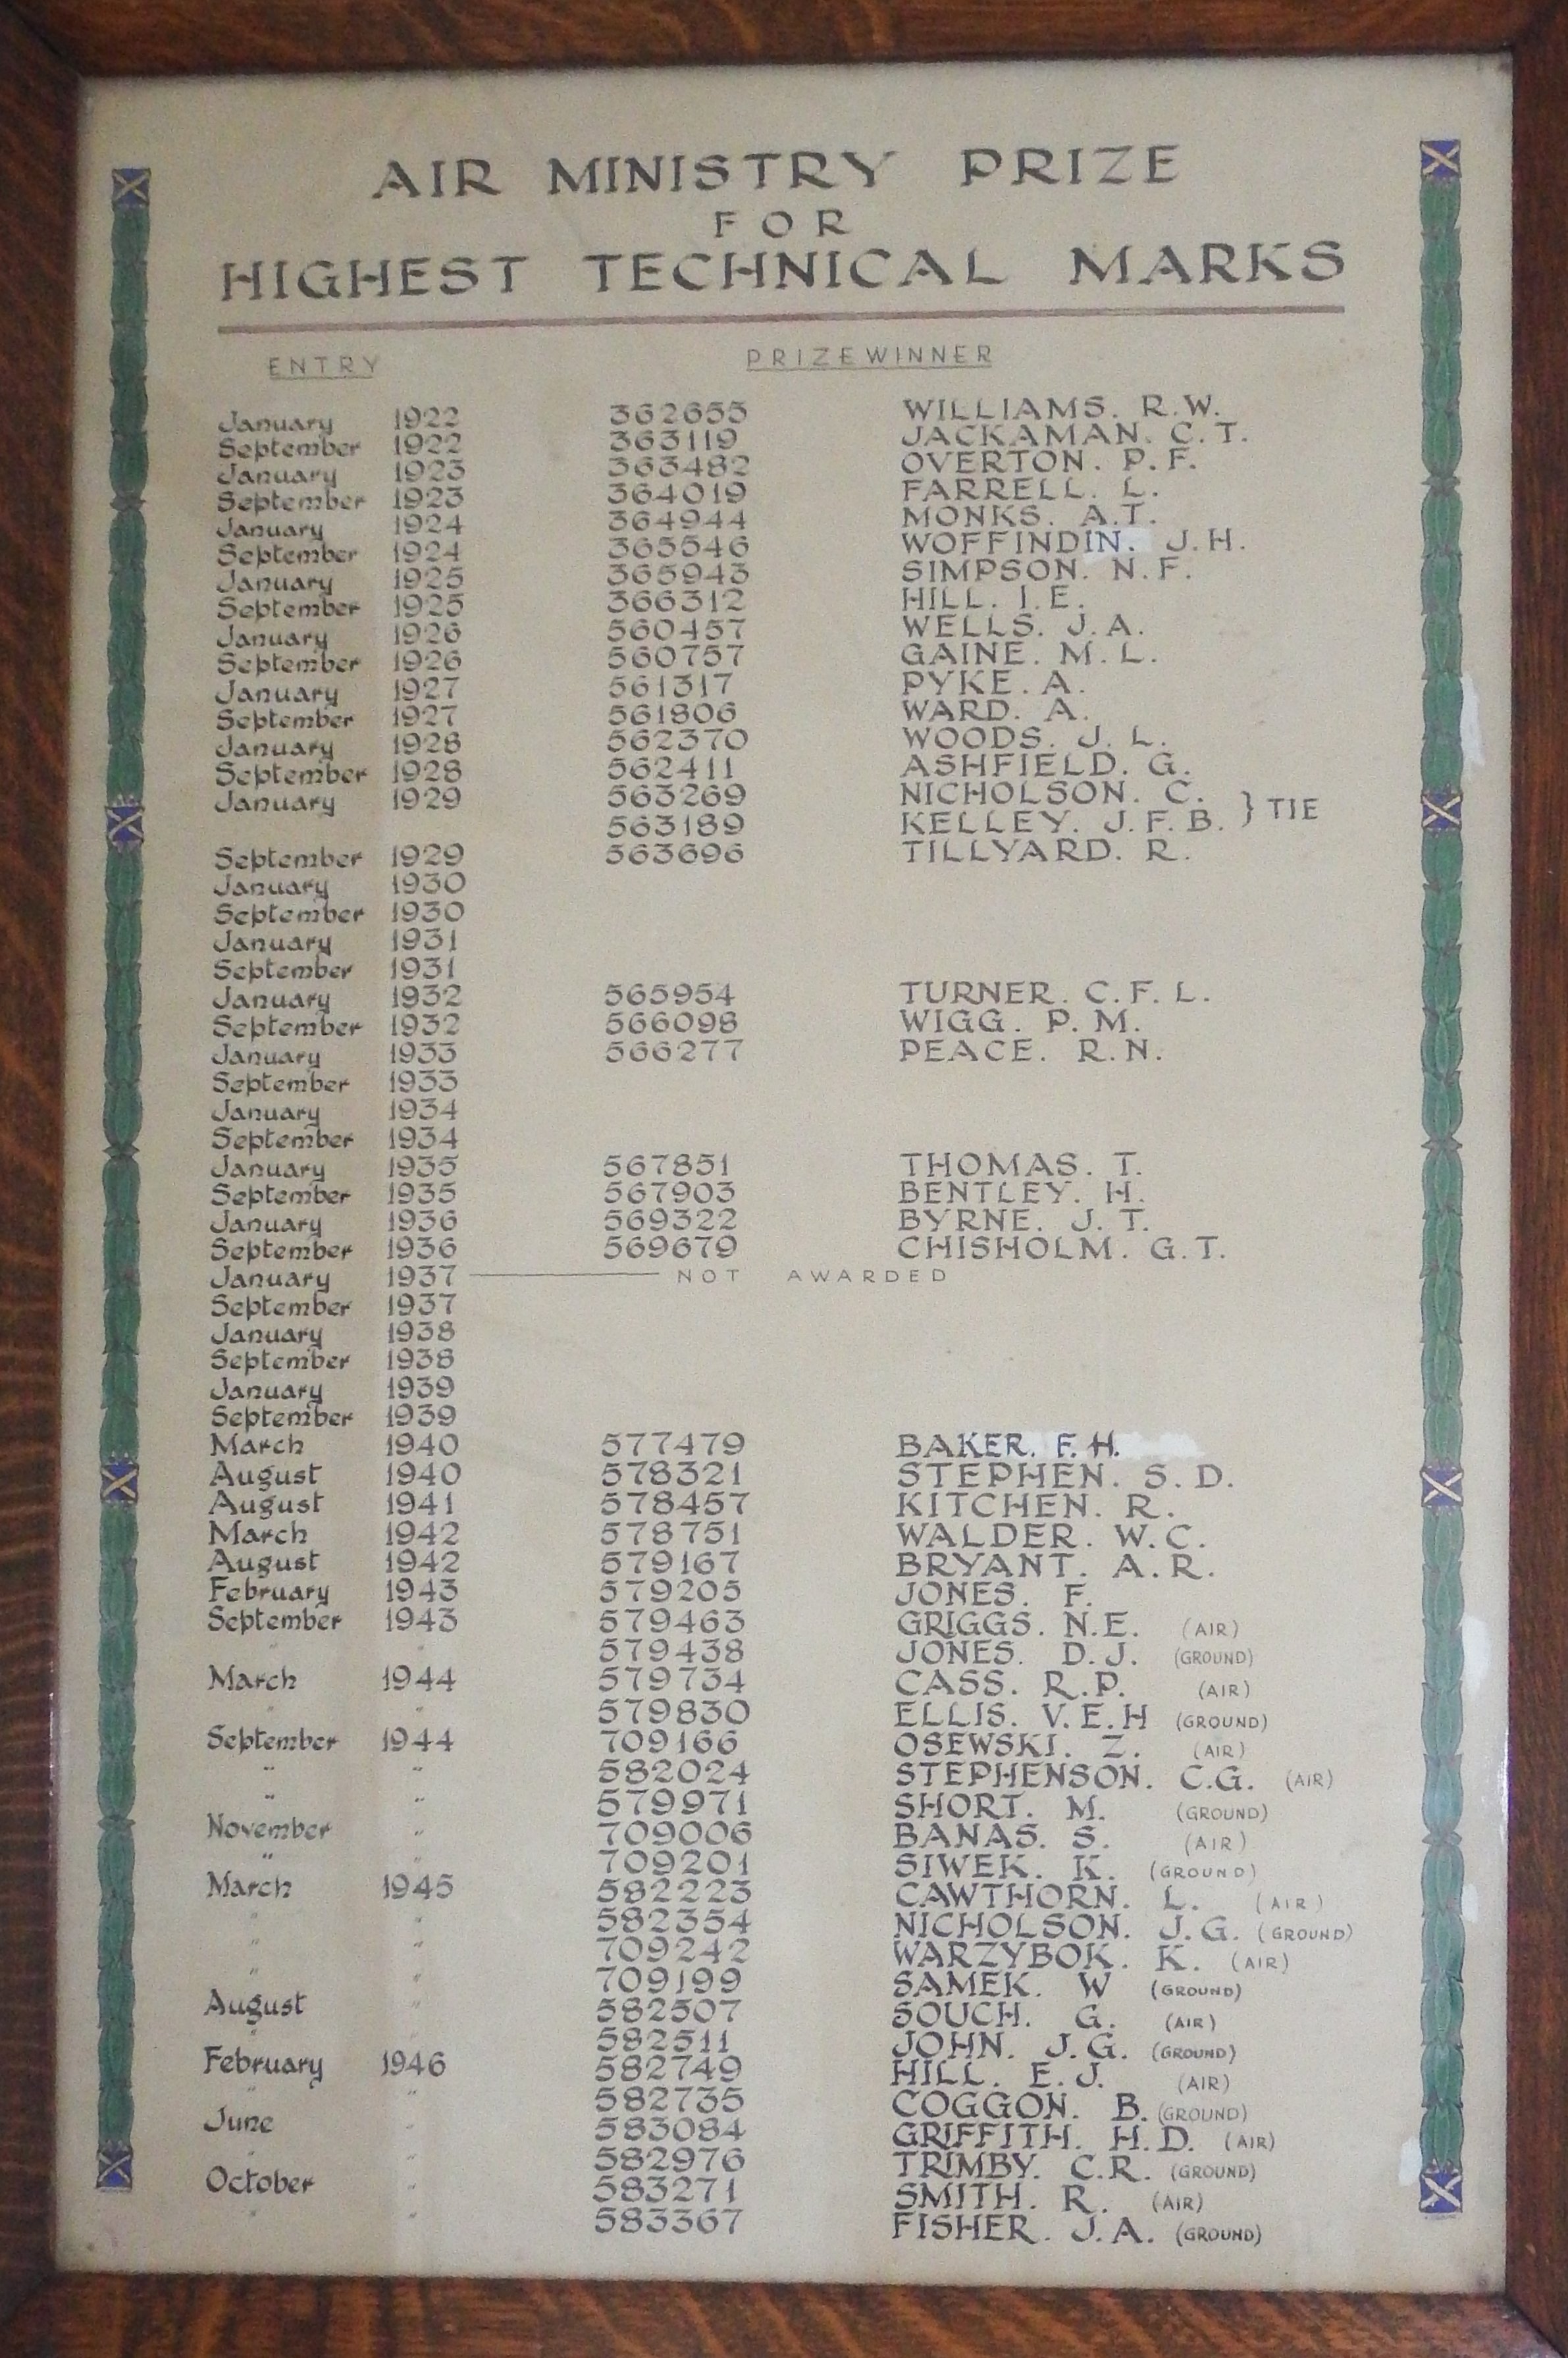 AIR MINISTRY PRIZE
FOR
HIGHEST TECHNICAL MARKS
ENTRY PRIZEWINNER
January 1922 362655 WILLIAMS. R.W.
September 1922 363119 JACKAMAN. C.T.
January 1923 363482 OVERTON. P.F.
September 1923 364019 FARRELL. L.
January 1924 364944 MONKS. A.T.
September 1924 365546 WOFFINDIN. J.H.
January 1925 365943 SIMPSON. N.F.
September 1925 366312 HILL. I.E.
January 1926 560457 WELLS. J.A.
September 1926 560757 GAINE. M.L.
January 1927 561317 PYKE. A.
September 1927 561806 WARD. A.
January 1928 562370 WOODS. J.L.
September 1928 562411 ASHFIELD. G.
January 1929 563269 NICHOLSON. C.
563189 KELLEY. J.F.B. } TIE
September 1929 563696 TILLYARD. R.
January 1930
September 1930
January 1931
September 1931
January 1932 565954 TURNER. C.F.L.
September 1932 566098 WIGG. P.M.
January 1933 566277 PEACE. R.N.
September 1933
January 1934
September 1934
January 1935 567851 THOMAS. T.
September 1935 567903 BENTLEY. H.
January 1936 569322 BYRNE. J.T.
September 1936 569679 CHISHOLM. G.T.
January 1937 NOT AWARDED
September 1937
January 1938
September 1938
January 1939
September 1939
March 1940 577479 BAKER. F.H.
August 1940 578321 STEPHEN. S.D.
August 1941 578457 KITCHEN. R.
March 1942 578751 WALDER. W.C.
August 1942 579167 BRYANT. A.R.
February 1943 579205 JONES. F.
September 1943 579463 GRIGGS. N.E. (AIR)
" " 579438 JONES. D.J. (GROUND)
March 1944 579734 CASS. R.P. (AIR)
" " 579830 ELLIS. V.E.H (GROUND)
September 1944 709166 OSEWSKI. Z. (AIR)
" " 582024 STEPHENSON. C.G. (AIR)
" " 579971 SHORT. M. (GROUND)
November " 709006 BANAS. S. (AIR)
" " 709201 SIWEK. K. (GROUND)
March 1945 582223 CAWTHORN. L. (AIR)
" " 582354 NICHOLSON. J.G. (GROUND)
" " 709242 WARZYBOK. K. (AIR)
" " 709199 SAMEK. W (GROUND)
August " 582507 SOUCH. G. (AIR)
" " 582511 JOHN. J.G. (GROUND)
February 1946 582749 HILL. E.J. (AIR)
" " 582735 COGGON. B. (GROUND)
June " 583084 GRIFFITH. H.D. (AIR)
" " 582976 TRIMBY. C.R. (GROUND)
October " 583271 SMITH. R. (AIR)
" " 583367 FISHER. J.A. (GROUND)